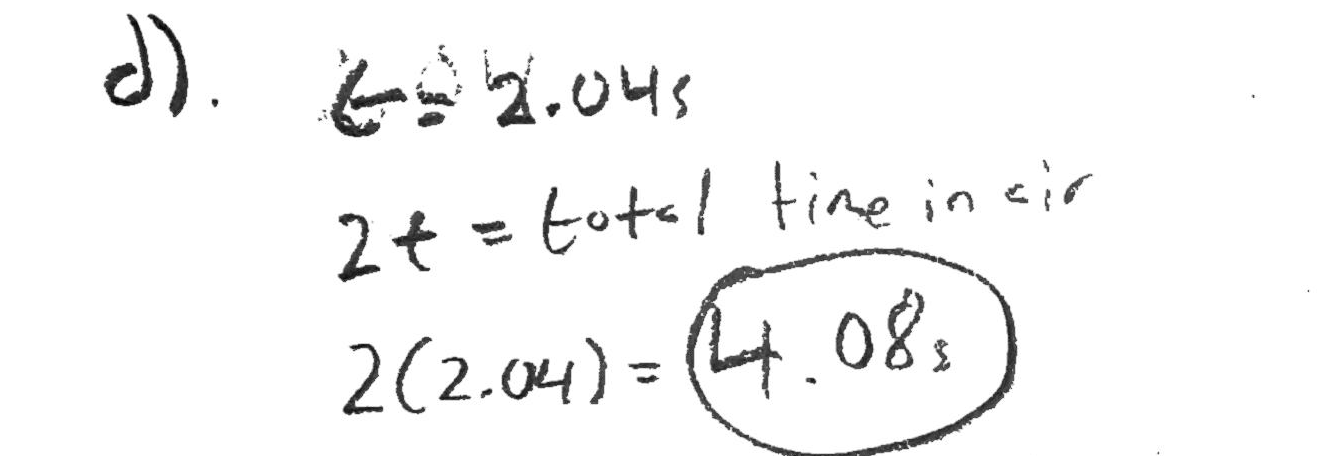 d). t = 2.04s
2t = total time in air
2(2.04) = 4.08s